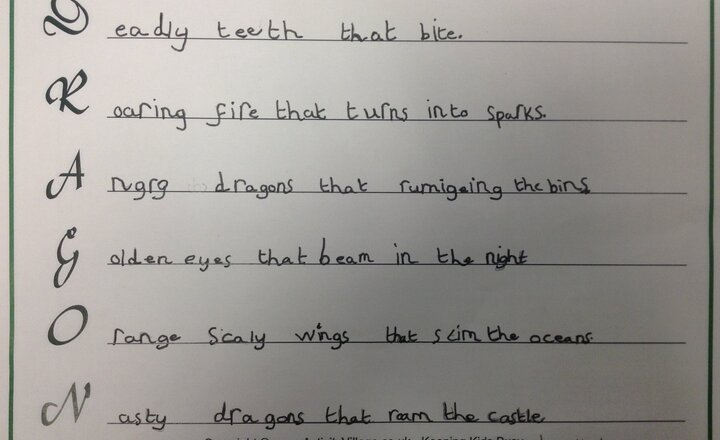 Deadly teeth that bite.
Roaring fire that turns into sparks.
Angrg dragons that rumigeing the bins
Golden eyes that beam in the night
Orange scaly wings that scim the oceans.
Nasty dragons that roam the castle